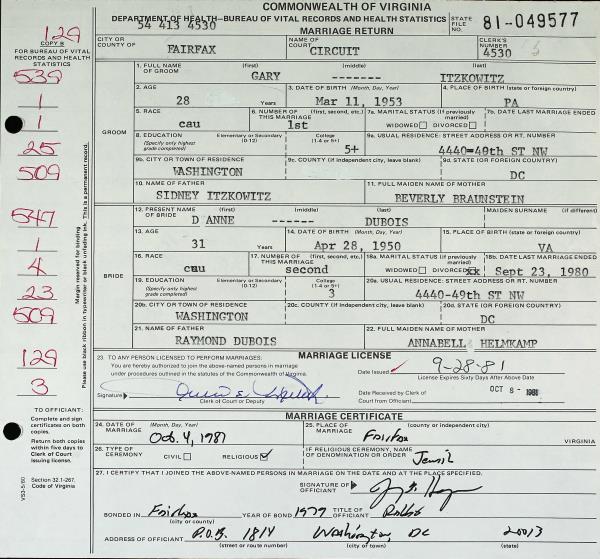 COMMONWEALTH OF VIRGINIA
DEPARTMENT OF HEALTH—BUREAU OF VITAL RECORDS AND HEALTH STATISTICS
54 413 4530
MARRIAGE RETURN
STATE FILE NO. 81-049577
129
COPY B
FOR BUREAU OF VITAL RECORDS AND HEALTH STATISTICS
CITY OR COUNTY OF FAIRFAX
NAME OF COURT CIRCUIT
CLERK'S NUMBER 4530
539
1
1
25
509
547
1
4
23
509
129
3
Margin reserved for binding
Please use black ribbon in typewriter or black unfading ink. This is a permanent record.
GROOM
1. FULL NAME OF GROOM (first) (middle) (last)
GARY ------- ITZKOWITZ
2. AGE 28 Years
3. DATE OF BIRTH (Month, Day, Year) Mar 11, 1953
4. PLACE OF BIRTH (state or foreign country) PA
5. RACE cau
6. NUMBER OF THIS MARRIAGE (first, second, etc.) 1st
7a. MARITAL STATUS (if previously married) WIDOWED DIVORCED
7b. DATE LAST MARRIAGE ENDED
8. EDUCATION (Specify only highest grade completed) Elementary or Secondary (0-12) College (1-4 or 5+) 5+
9a. USUAL RESIDENCE: STREET ADDRESS OR RT. NUMBER 4440-49th ST NW
9b. CITY OR TOWN OF RESIDENCE WASHINGTON
9c. COUNTY (If independent city, leave blank)
9d. STATE (OR FOREIGN COUNTRY) DC
10. NAME OF FATHER SIDNEY ITZKOWITZ
11. FULL MAIDEN NAME OF MOTHER BEVERLY BRAUNSTEIN
BRIDE
12. PRESENT NAME OF BRIDE (first) (middle) (last) MAIDEN SURNAME (if different)
D'ANNE ------ DUBOIS
13. AGE 31 Years
14. DATE OF BIRTH (Month, Day, Year) Apr 28, 1950
15. PLACE OF BIRTH (state or foreign country) VA
16. RACE cau
17. NUMBER OF THIS MARRIAGE (first, second, etc.) second
18a. MARITAL STATUS (if previously married) WIDOWED DIVORCED xx
18b. DATE LAST MARRIAGE ENDED Sept 23, 1980
19. EDUCATION (Specify only highest grade completed) Elementary or Secondary (0-12) College (1-4 or 5+) 3
20a. USUAL RESIDENCE: STREET ADDRESS OR RT. NUMBER 4440-49th ST NW
20b. CITY OR TOWN OF RESIDENCE WASHINGTON
20c. COUNTY (If independent city, leave blank)
20d. STATE (OR FOREIGN COUNTRY) DC
21. NAME OF FATHER RAYMOND DUBOIS
22. FULL MAIDEN NAME OF MOTHER ANNABELL HELMKAMP
MARRIAGE LICENSE
23. TO ANY PERSON LICENSED TO PERFORM MARRIAGES:
You are hereby authorized to join the above-named persons in marriage
under procedures outlined in the statutes of the Commonwealth of Virginia.
Date Issued 9-28-81
License Expires Sixty Days After Above Date
Signature
Clerk of Court or Deputy
Date Received by Clerk of Court from Official OCT 8 - 1981
MARRIAGE CERTIFICATE
TO OFFICIANT:
Complete and sign certificates on both copies.
Return both copies within five days to Clerk of Court issuing license.
Section 32.1-267, Code of Virginia
24. DATE OF MARRIAGE (Month, Day, Year) Oct. 4, 1981
25. PLACE OF MARRIAGE (county or independent city) Fairfax VIRGINIA
26. TYPE OF CEREMONY CIVIL RELIGIOUS ✓
IF RELIGIOUS CEREMONY, NAME OF DENOMINATION OR ORDER Jewish
27. I CERTIFY THAT I JOINED THE ABOVE-NAMED PERSONS IN MARRIAGE ON THE DATE AND AT THE PLACE SPECIFIED.
SIGNATURE OF OFFICIANT
BONDED IN Fairfax (city or county) YEAR OF BOND 1979 TITLE OF OFFICIANT Rabbi
ADDRESS OF OFFICIANT P.O.B. 1814 (street or route number) Washington, DC (city or town) (state) 20013